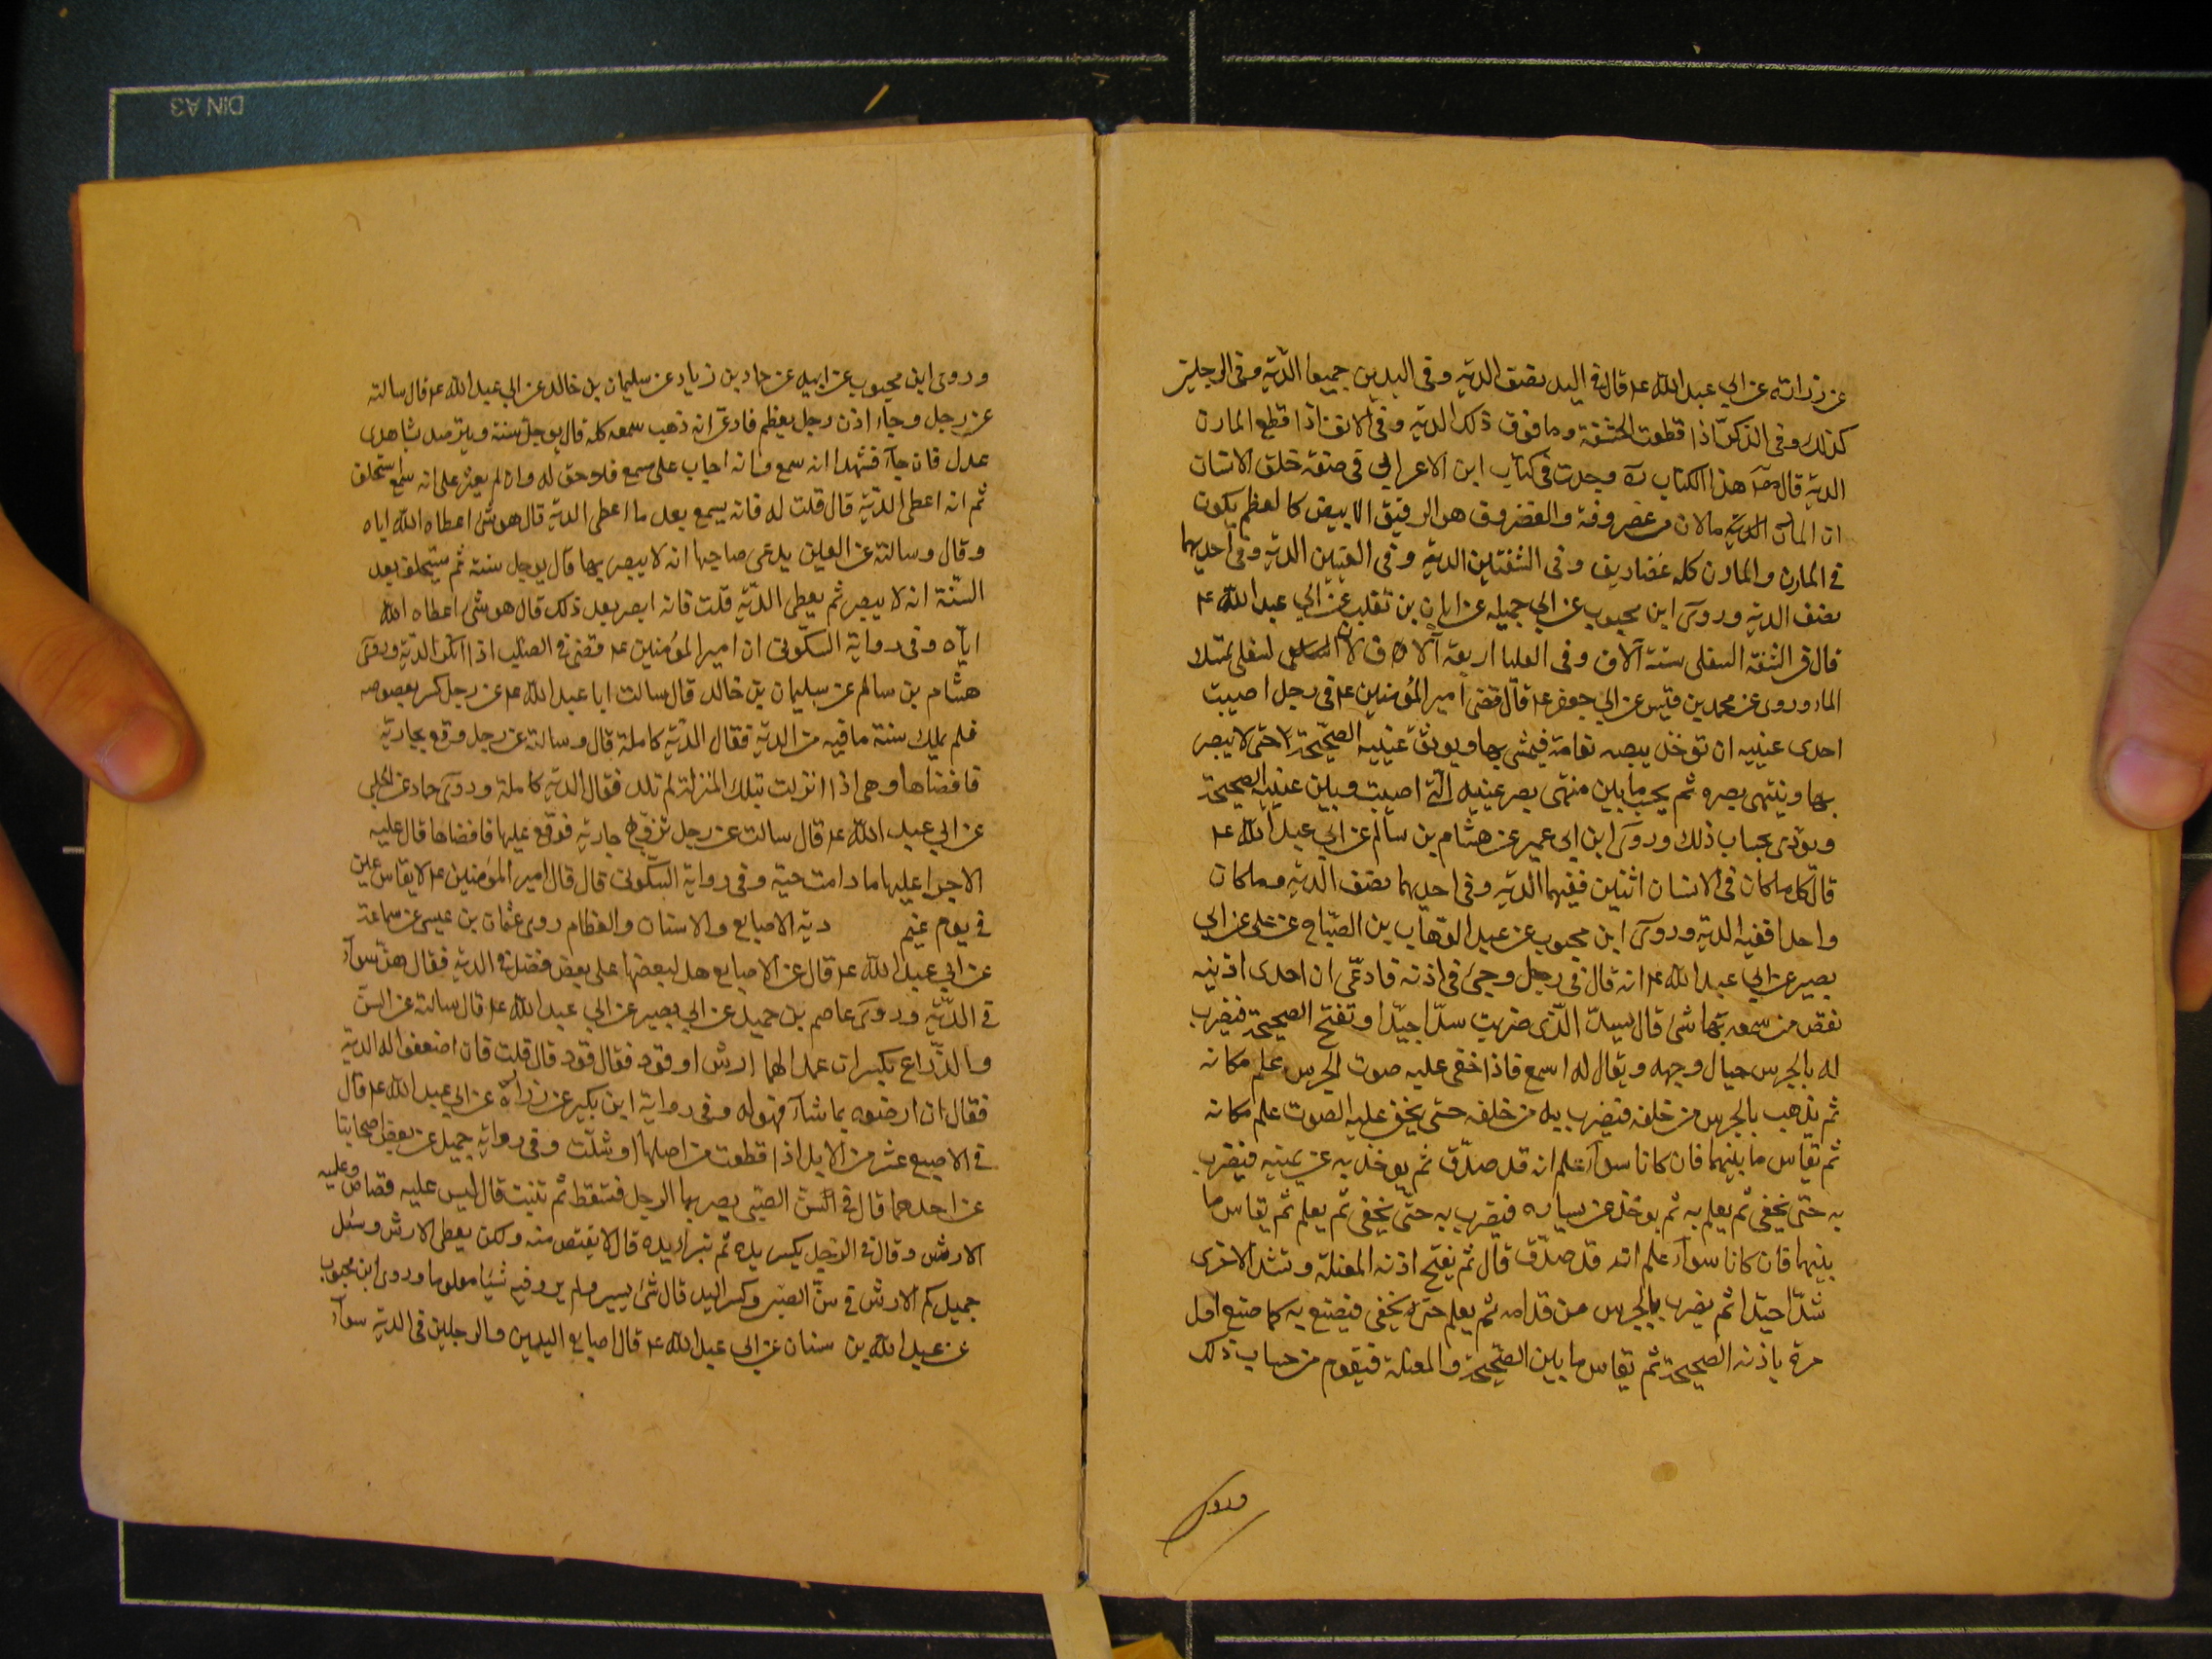 عن زرارة عن ابي عبد الله ع‍ قال في اليد نصف الدية وفي اليدين جميعا الدية وفي الرجلين
كذلك وفي الذكر اذا قطعت الحشفة وما فوق ذلك الدية وفي الانف اذا قطع المارن
الدية قال مص‍ هذا الكتاب ره وجدت في كتاب ابن الاعرابي في صفة خلق الانسان
ان المارن ما لان من غضروفه والغضروف هو الرقيق الابيض كالعظم يكون
في المارن والمارن كله غضاريف وفي الشفتين الدية وفي العينين الدية وفي احديهما
نصف الدية وروى ابن محبوب عن ابي جميلة عن ابان بن تغلب عن ابي عبد الله ع‍
قال في الشفة السفلى ستة آلاف وفي العليا اربعة آلاف لان السفلى تمسك
الماء وروى عن محمد بن قيس عن ابي جعفر ع‍ قال قضى امير المؤمنين ع‍ في رجل اصيبت
احدى عينيه ان توخذ بيضه نعامة فيمشى بها ويوثق عينيه الصحيحة حتى لا يبصر
بها وينتهى بصره ثم يحسب ما بين منتهى بصر عينيه التي اصيبت وبين عينيه الصحيحة
ويودى بحساب ذلك وروى ابن ابي عمير عن هشام بن سالم عن ابي عبد الله ع‍
قال كل ما كان في الانسان اثنين ففيهما الدية وفي احديهما نصف الدية وما كان
واحدا ففيه الدية وروى ابن محبوب عن عبد الوهاب بن الصباح عن علي عن ابي
بصير عن ابي عبد الله ع‍ انه قال في رجل وجئ في اذنه فادعى ان احدى اذنيه
نقص من سمعه بها شئ قال يسد الذي ضربت سدا جيدا وتفتح الصحيحة فيضرب
له بالجرس حيال وجهه ويقال له اسمع فاذا خفى عليه صوت الجرس علم مكانه
ثم يذهب بالجرس من خلفه فيضرب به من خلفه حتى يخفى عليه الصوت علم مكانه
ثم يقاس ما بينهما فان كانا سوآء علم انه قد صدق ثم يوخذ به عن يمينه فيضرب
به حتى يخفى ثم يعلم به ثم يوخذ عن يساره فيضرب به حتى يخفى ثم يعلم ثم يقاس ما
بينهما فان كانا سوآء علم انه قد صدق قال ثم يفتح اذنه المعتلة وتشد الاخرى
شدا جيدا ثم يضرب بالجرس من قدامه ثم يعلم حتى يخفى فيصنع به كما صنع اول
مرة باذنه الصحيحة ثم يقاس ما بين الصحيحة والمعتلة فيقوم من حساب ذلك
وروى
وروى ابن محبوب عن ابيه عن حماد بن زياد عن سليمان بن خالد عن ابي عبد الله ع‍ قال سالته
عن رجل وجاء اذن رجل بعظم فادعى انه ذهب سمعه كله قال يوجل سنة ويترصد بشاهدى
عدل فان جآء فشهدا انه سمع وانه اجاب على سمع فلا حق له وان لم يعثر على انه سمع استحلف
ثم انه اعطى الدية قال قلت له فانه يسمع بعد ما اعطى الدية قال هو شئ اعطاه الله اياه
وقال وسالته عن العين يدعى صاحبها انه لا يبصر بها قال يوجل سنة ثم يستحلف بعد
السنة انه لا يبصر ثم يعطى الدية قلت فانه ابصر بعد ذلك قال هو شئ اعطاه الله
اياه وفي رواية السكوني ان امير المؤمنين ع‍ قضى في الصلب اذا انكسر الدية وروى
هشام بن سالم عن سليمان بن خالد قال سالت ابا عبد الله ع‍ عن رجل كسر بعصوصه
فلم يملك استه ما فيه من الدية فقال الدية كاملة قال وسالته عن رجل وقع بجارية
فافضاها وهي اذا نزلت بتلك المنزلة لم تلد فقال الدية كاملة وروى حماد عن الحلبي
عن ابي عبد الله ع‍ قال سالت عن رجل تزوج جارية فوقع عليها فافضاها قال عليه
الاجرا عليها ما دامت حية وفي رواية السكوني قال قال امير المؤمنين ع‍ لا يقاس عين
في يوم غيم دية الاصابع والاسنان والعظام روى عثمان بن عيسى عن سماعة
عن ابي عبد الله ع‍ قال عن الاصابع هل لبعضها على بعض فضل في الدية فقال هن سوآء
في الدية وروى عاصم بن حميد عن ابي بصير عن ابي عبد الله ع‍ قال سالته عن السن
والذراع يكسران عمدا لهما ارش او قود فقال قود قال قلت فان اضعفوا له الدية
فقال ان ارضوه بما شآء فهو له وفي رواية ابن بكير عن زرارة عن ابي عبد الله ع‍ قال
في الاصبع عشر من الابل اذا قطعت من اصلها او شلت وفي رواية جميل عن بعض اصحابنا
عن احدهما قال في السن الصبي يضربها الرجل فتسقط ثم تنبت قال ليس عليه قصاص وعليه
الارش وقال في الرجل يكسر يده ثم تبرأ يده قال لا يقتص منه ولكن يعطى الارش وسئل
جميل كم الارش في سن الصبي وكسر اليد قال شئ يسير ولم يرو فيه شيئا معلوما وروى ابن محبوب
عن عبد الله بن سنان عن ابي عبد الله ع‍ قال اصابع اليدين والرجلين في الدية سوآء